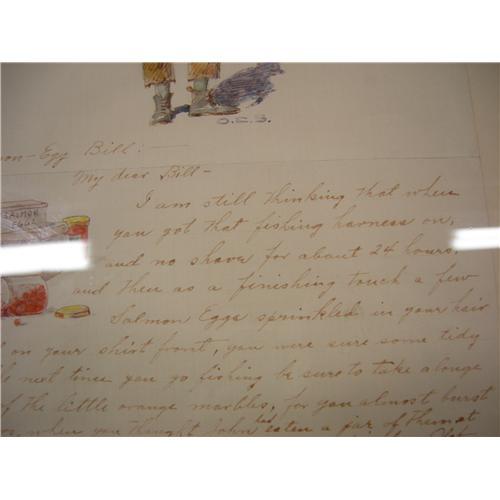 O.C.S.
mon-Egg Bill:—
My dear Bill-
I am still thinking that when
you got that fishing harness on,
and no shave for about 24 hours.
and then as a finishing touch a few
Salmon Eggs sprinkled in your hair
on your shirt front, you were sure some tidy
next time you go fishing be sure to take alonge
of the little orange marbles, for you almost burst
when you thought John had eaten a jar of them at
SALMON
EGGS